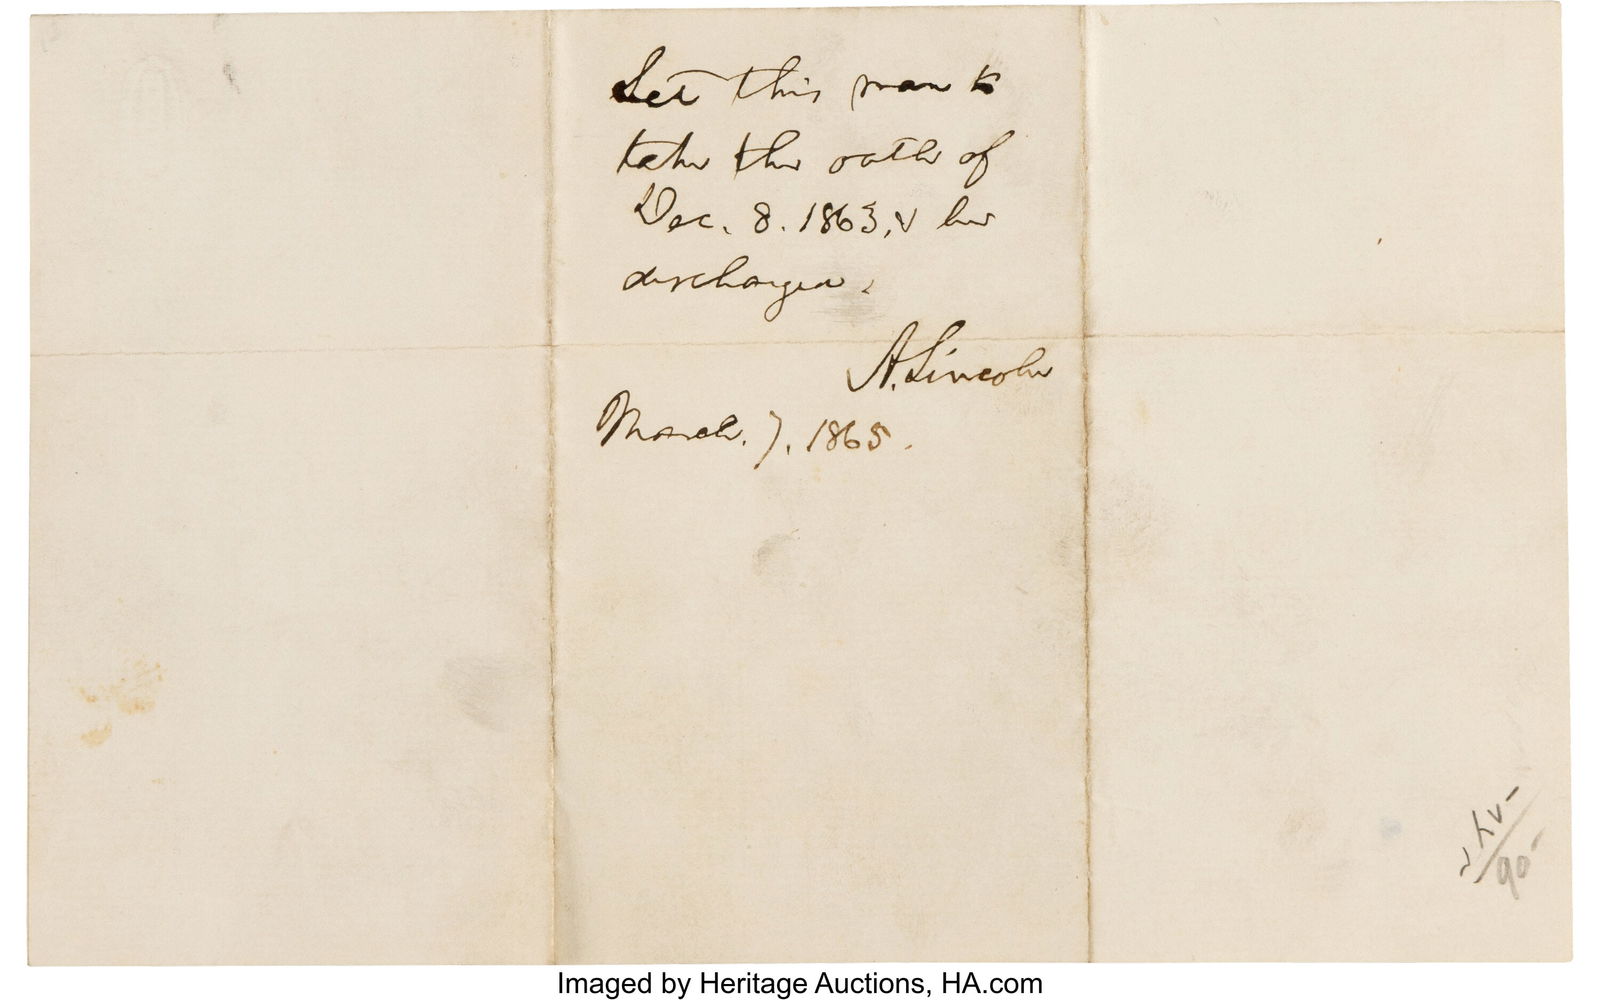 Let this man to
take the oath of
Dec. 8. 1863, & be
discharged.
A. Lincoln
March. 7. 1865.
90
Imaged by Heritage Auctions, HA.com